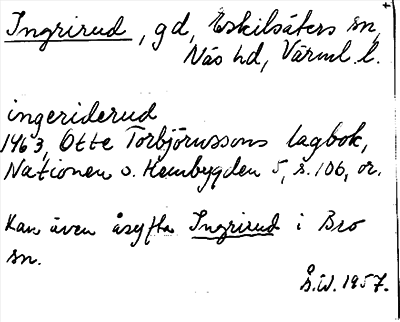 Ingrirud, gd, Eskilsäters sn,
Näs hd, Värml. l.
ingeriderud
1463, Otte Torbjörnssons lagbok,
Nationen o. Hembygden 5, s. 106, or.
Kan även åsyfta Ingrirud i Bro
sn.
S.W. 1957.